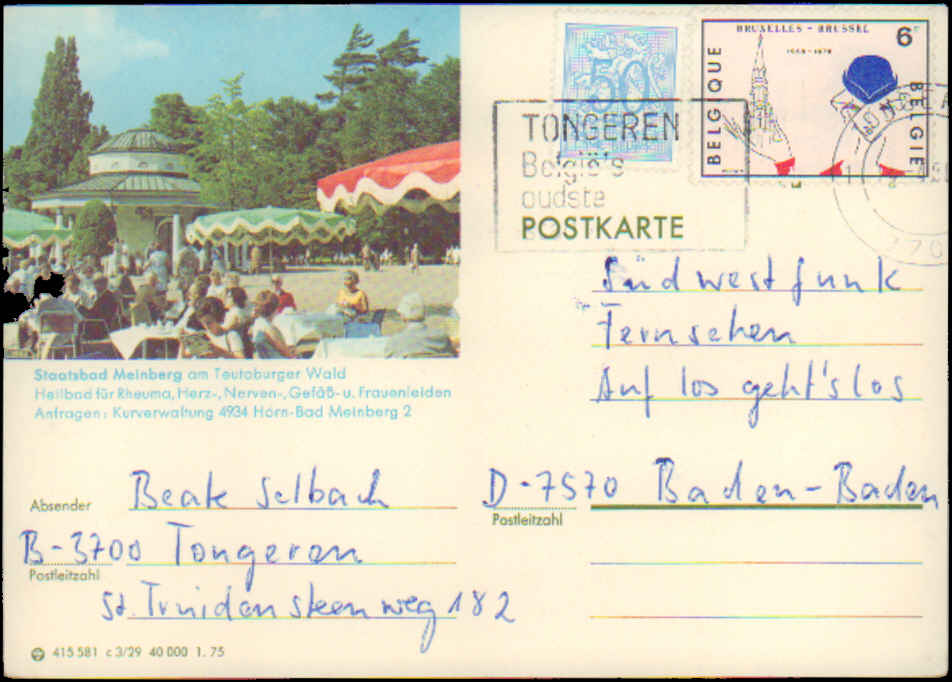 50
BRUXELLES - BRUSSEL
6F
BELGIQUE
BELGIË
TONGEREN
België's
oudste
POSTKARTE
Südwestfunk
Fernsehen
Auf los geht's los
Staatsbad Meinberg am Teutoburger Wald
Heilbad für Rheuma, Herz-, Nerven-, Gefäß- u. Frauenleiden
Anfragen: Kurverwaltung 4934 Horn-Bad Meinberg 2
Absender Beate Selbach
D-7570 Baden-Baden
Postleitzahl
B-3700 Tongeren
Postleitzahl
St. Truidensteenweg 182
415 581 c 3/29 40 000 1. 75